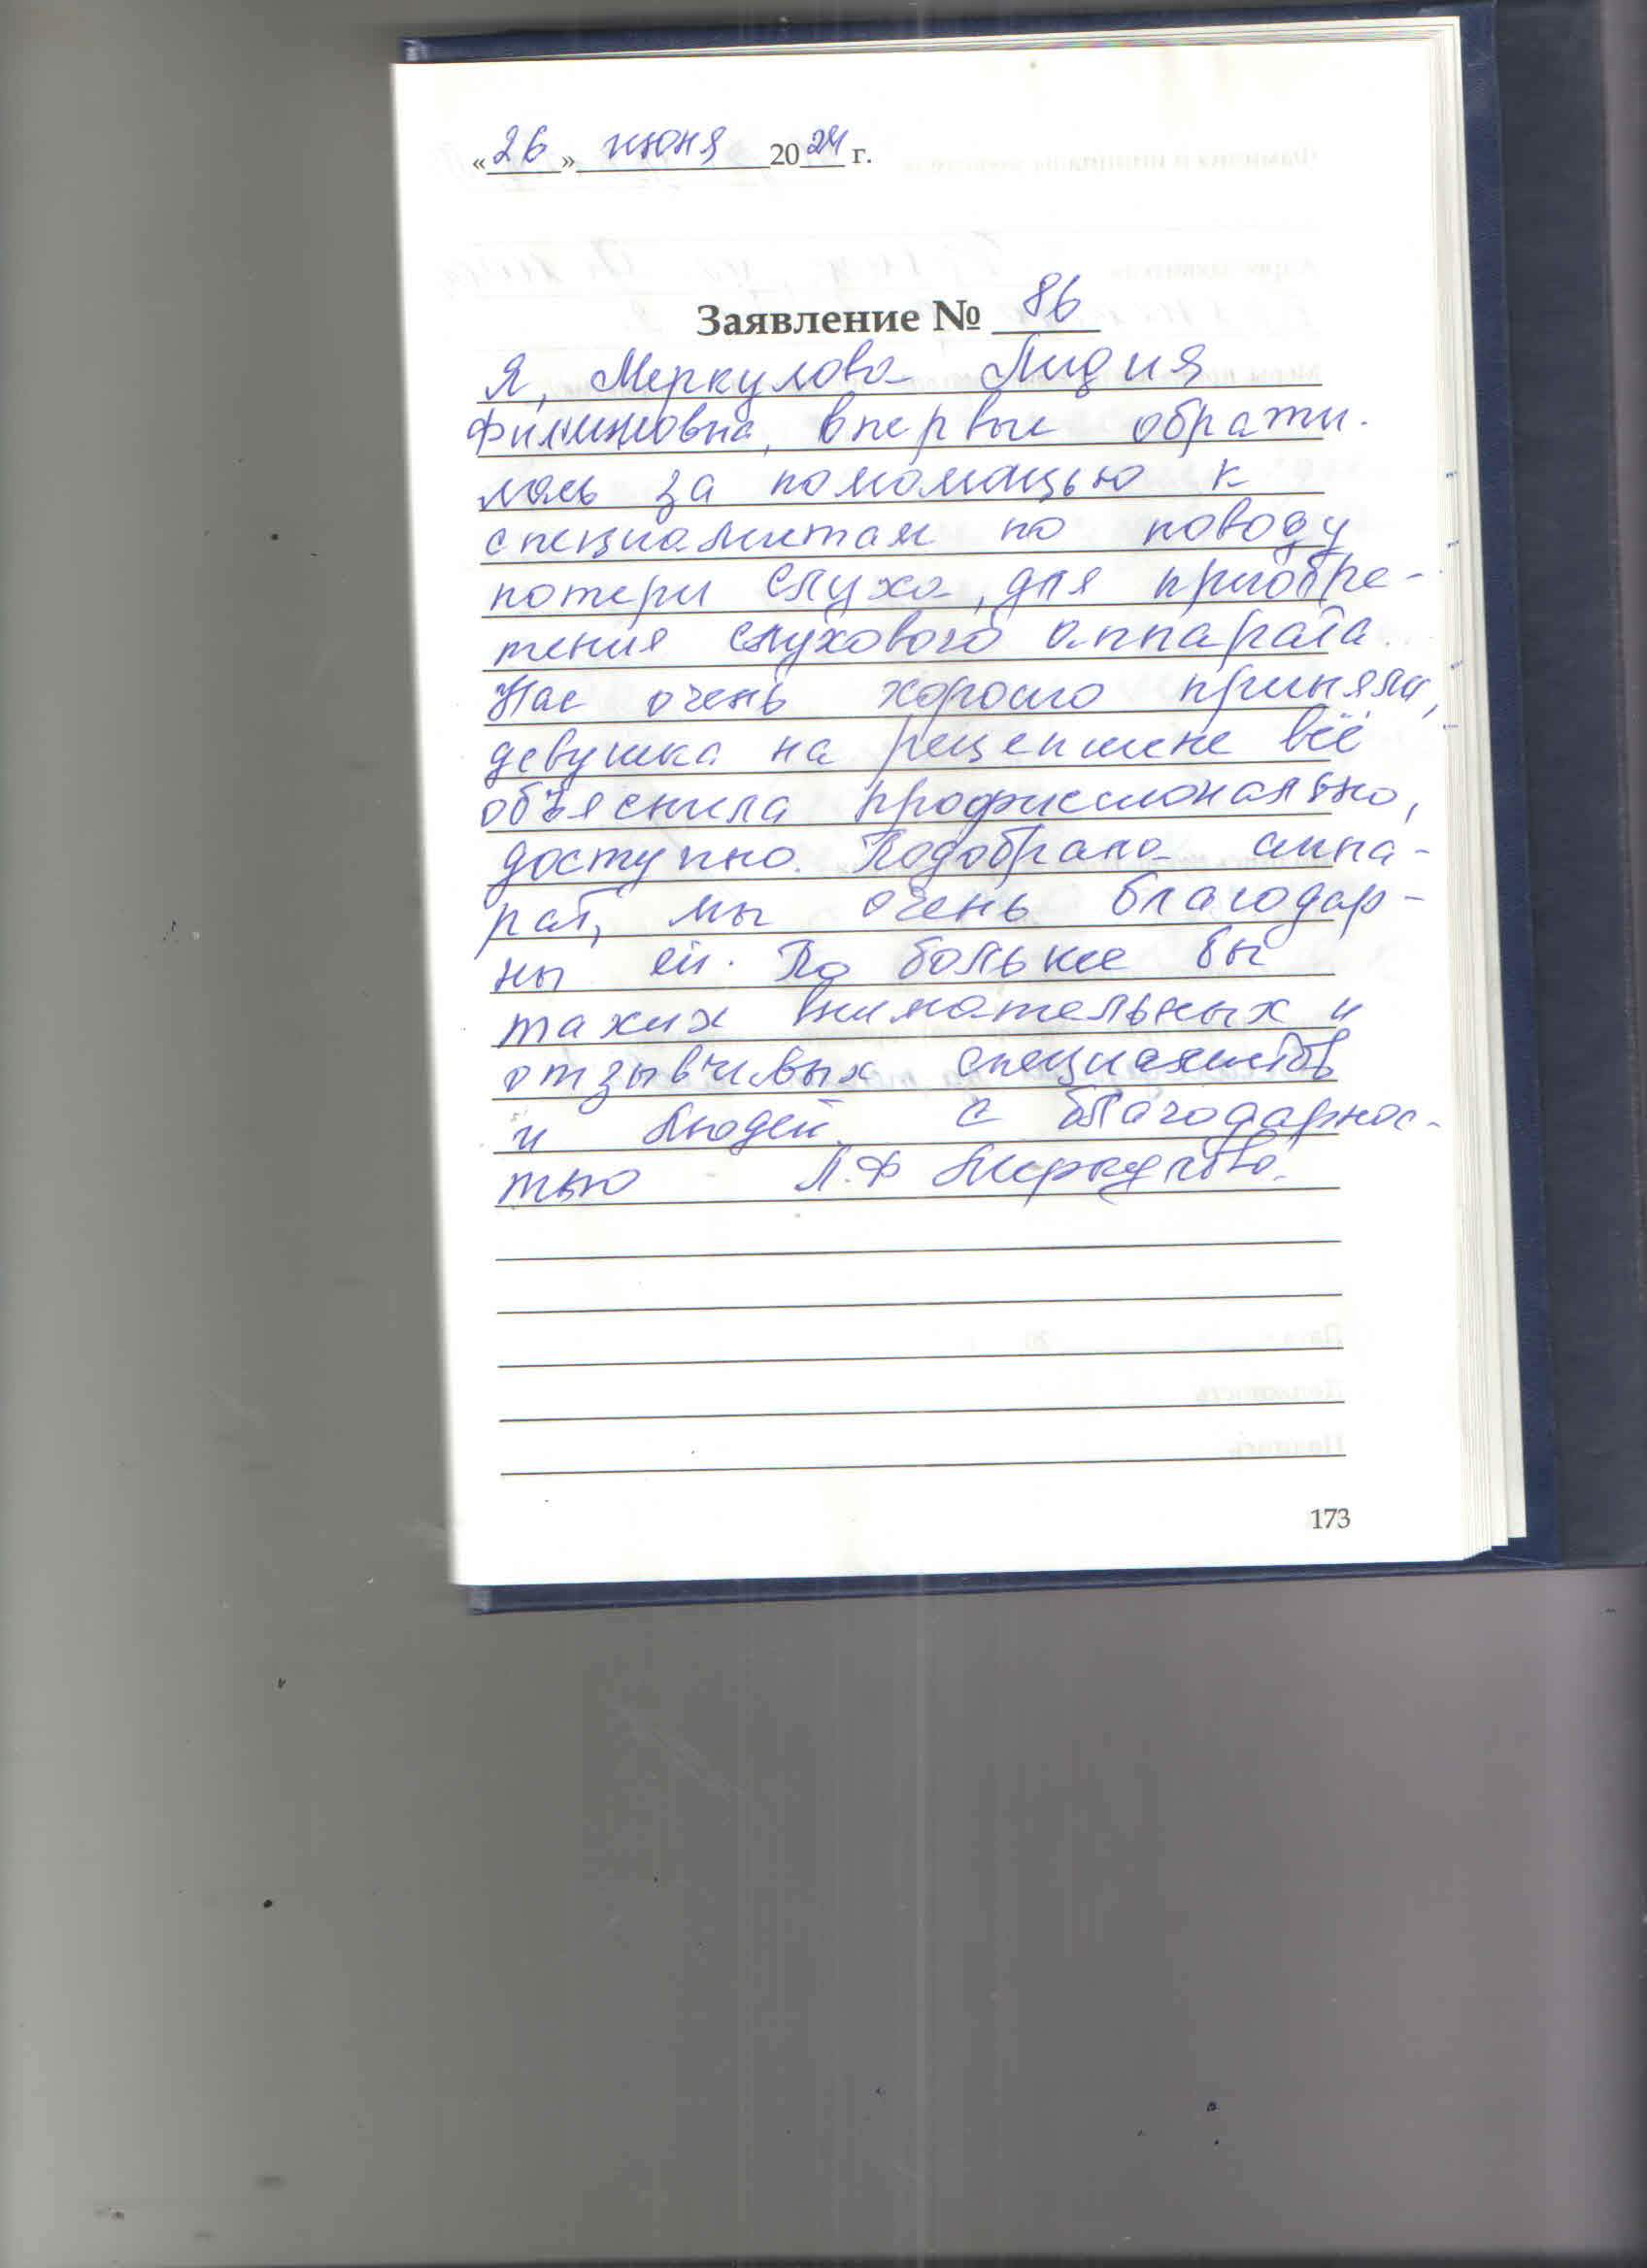 «26» июня 2024 г.
Заявление № 86
Я, Меркулова Лидия
Филипповна, впервые обрати-
лась за помомощью к
специалистам по поводу
потери слуха, для приобре-
тения слухового аппарата.
Нас очень хорошо приняли,
девушка на рецепшене всё
объяснила профессионально,
доступно. Подобрала аппа-
рат, мы очень благодар-
ны ей. По больше бы
таких внимательных и
отзывчивых специалистов
и людей. С благодарнос-
тью Л.Ф Меркулова.
173